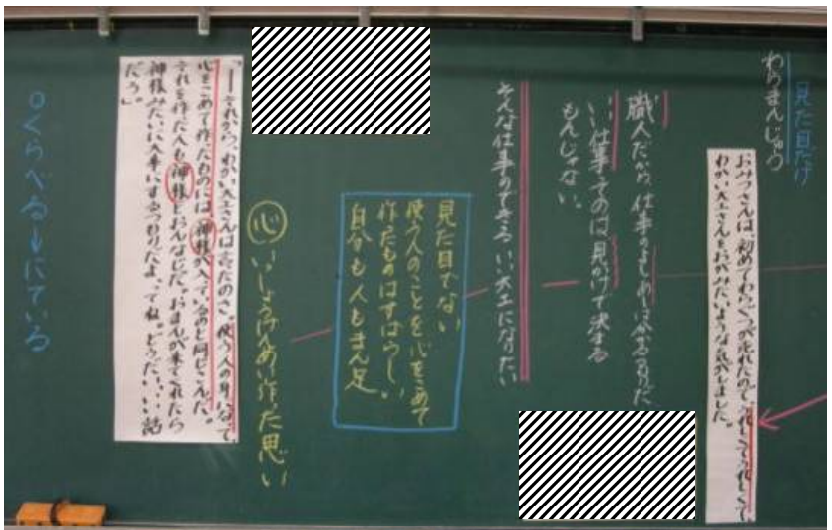 見た目だけ
わりまんじゅう
おみつさんは、初めてわらぐつが売れたので、うれしくてうれしくて、
わかい大工さんをおがみたいような気がしました。
職人だから、仕事のよしあしは分かるつもりだ。
いい仕事ってのは見かけで決まる
もんじゃない。
そんな仕事のできるいい大工になりたい
見た目でない
使う人のことを心をこめて
作ったものはすばらしい
自分も人もまん足
心 いっしょうけんめい作った思い
「――それから、わかい大工さんは言ったのさ。使う人の身になって、
心をこめて作ったものには、神様が入っているのと同じこんだ。
それを作った人も、神様とおんなじだ。おまんが来てくれたら、
神様みたいに大事にするつもりだよ、ってね。どうだい、いい話
だろ」。
○くらべる→にている